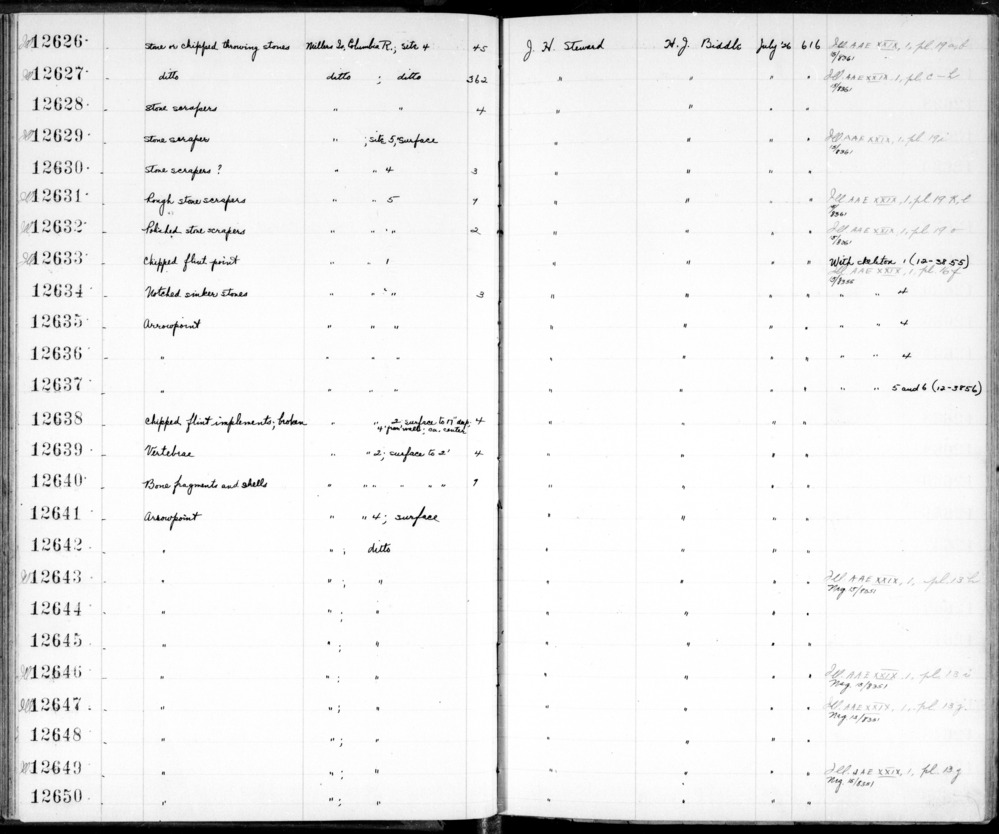 Ill 12626 Stone or chipped throwing stones Millers Is, Columbia R.; site 4 45 J. H. Steward H. J. Biddle July '26 616 Ill AAE XXIX, 1, pl 19 a, b
15/8361
12627 ditto ditto ; ditto 362 " " " " Ill. AAE XXIX, 1, pl. c-h
15/8361
12628 Stone scrapers " " 4 " " " "
12629 Stone scraper " ; site 5, surface " " " " Ill AAE XXIX, 1, pl 19 i
15/8361
12630 Stone scrapers ? " " 4 3 " " " "
12631 Rough stone scrapers " " 5 7 " " " " Ill AAE XXIX, 1, pl 19 k, l
15/8361
12632 Polished stone scrapers " " " 2 " " " " Ill AAE XXIX, 1, pl 19 o
15/8361
12633 Chipped flint point " " 1 " " " " With skeleton 1 (12-3855)
Ill AAE XXIX, 1, pl 16 f
12634 Notched sinker stones " " " 3 " " " " " " 4
12635 Arrowpoint " " " " " " " " " 4
12636 " " " " " " " " " " 4
12637 " " " " " " " " " " 5 and 6 (12-3856)
12638 Chipped flint implements; broken " " 2, surface to 17" dep. 4 " " " "
4' from walls; ca. center
12639 Vertebrae " " 2; surface to 2' 4 " " " "
12640 Bone fragments and shells " " " " " " 7 " " " "
12641 Arrowpoint " " 4; surface " " " "
12642 " " ; ditto " " " "
12643 " " ; " " " " " Ill AAE XXIX, 1, pl. 13 h
Neg 15/8351
12644 " " ; " " " " "
12645 " " ; " " " " "
12646 " " ; " " " " " Ill AAE XXIX, 1, pl. 13 i
Neg. 15/8351
12647 " " ; " " " " " Ill. AAE XXIX, 1, pl 13 j
Neg 15/8351
12648 " " ; " " " " "
12649 " " ; " " " " " Ill. AAE XXIX, 1, pl. 13 g
Neg 15/8351
12650 " " ; " " " " "